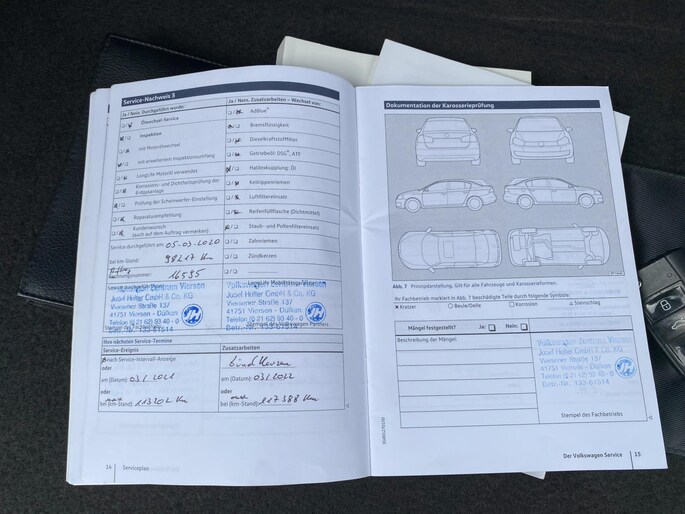 Service-Nachweis 3
Ja / Nein. Durchgeführt wurde:
Ölwechsel-Service
Inspektion
mit Motorölwechsel
mit erweitertem Inspektionsumfang
LongLife Motoröl verwendet
Korrosions- und Dichtheitsprüfung der
Erdgasanlage
Prüfung der Scheinwerfer-Einstellung
Reparaturempfehlung
Kundenwunsch
(auch auf dem Auftrag vermerken)
Service durchgeführt am: 05-03-2020
bei km-Stand: 98217 Km
16595
Service durchgeführt
Volkswagen Zentrum Viersen
Josef Hülter GmbH & Co. KG
Viersener Straße 137
41751 Viersen - Dülken
Telefon (0 21 62) 93 40 - 0
Betr.-Nr. 133-61514
Ja / Nein. Zusatzarbeiten – Wechsel von:
AdBlue®
Bremsflüssigkeit
Dieselkraftstofffilter
Getriebeöl DSG®, ATF
Haldexkupplung: Öl
Keilrippenriemen
Luftfiltereinsatz
Reifenfüllflasche (Dichtmittel)
Staub- und Pollenfiltereinsatz
Zahnriemen
Zündkerzen
Volkswagen Zentrum Viersen
Josef Hülter GmbH & Co. KG
Viersener Straße 137
41751 Viersen - Dülken
Telefon (0 21 62) 93 40 - 0
Betr.-Nr. 133-61514
Stempel des Volkswagen Partners
Ihre nächsten Service-Termine
Service-Ereignis
nach Service-Intervall-Anzeige
oder
am (Datum): 03/2021
oder
bei (km-Stand): 113202 Km
Zusatzarbeiten
am (Datum): 03/2022
oder
bei (km-Stand): 117388 Km
14 Serviceplan
Dokumentation der Karosserieprüfung
Abb. 7 Prinzipdarstellung. Gilt für alle Fahrzeuge und Karosserieformen.
Ihr Fachbetrieb markiert in Abb. 7 beschädigte Teile durch folgende Symbole:
× Kratzer ○ Beule/Delle □ Korrosion △ Steinschlag
Mängel festgestellt? Ja: Nein:
Beschreibung der Mängel:
Volkswagen Zentrum Viersen
Josef Hülter GmbH & Co. KG
Viersener Straße 137
41751 Viersen - Dülken
Telefon (0 21 62) 93 40 - 0
Betr.-Nr. 133-61514
Stempel des Fachbetriebs
Der Volkswagen Service 15